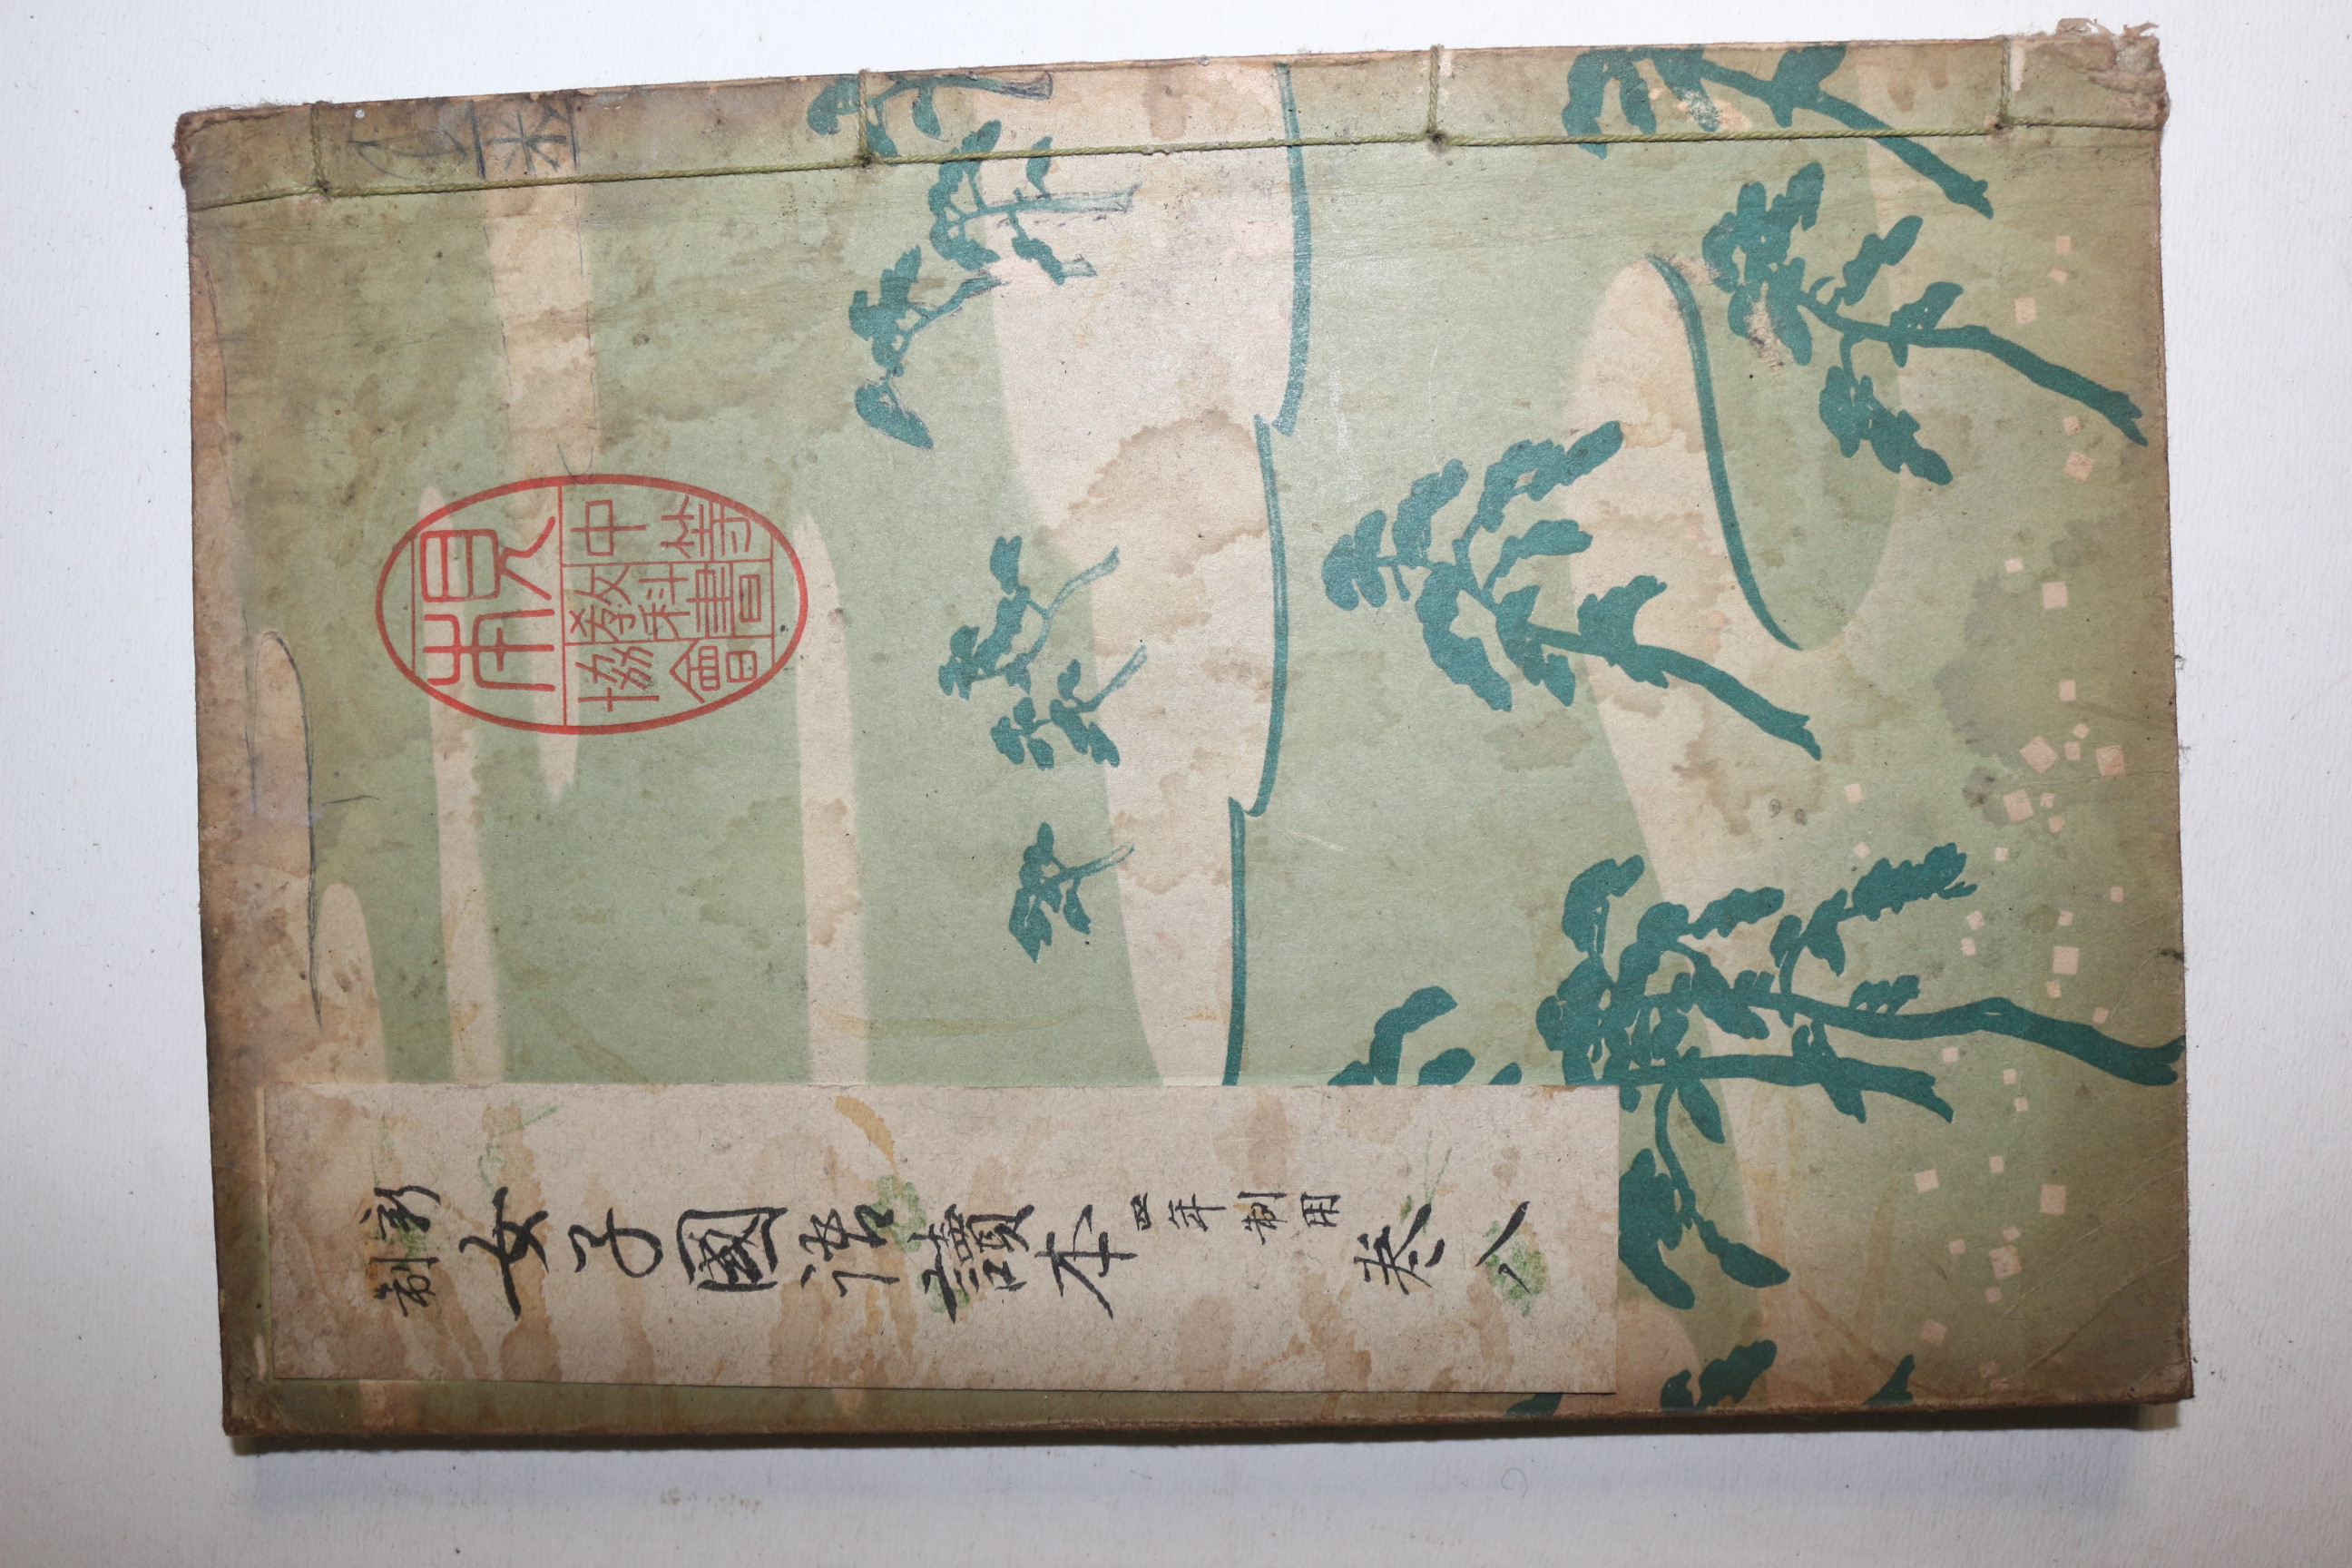 見本
中等
教科書
協會
新制 女子國語讀本 四年制用 卷八